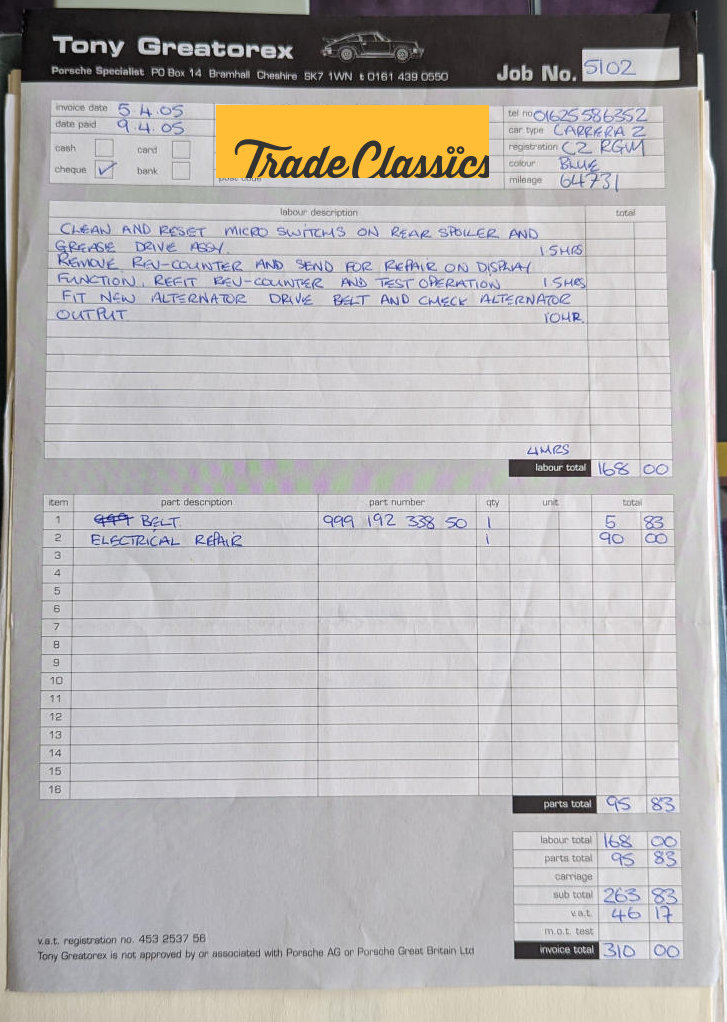 Tony Greatorex
Porsche Specialist PO Box 14 Bramhall Cheshire SK7 1WN t 0161 439 0550
Job No. 5102
invoice date 5.4.05
date paid 9.4.05
cash card
cheque ✓ bank
Trade Classics
post code
tel no 01625 586352
car type CARRERA 2
registration C2 RGM
colour BLUE
mileage 64731
labour description total
CLEAN AND RESET MICRO SWITCHS ON REAR SPOILER AND
GREASE DRIVE ASSY. 1 5HRS
REMOVE REV-COUNTER AND SEND FOR REPAIR ON DISPLAY
FUNCTION. REFIT REV-COUNTER AND TEST OPERATION 1 5HRS
FIT NEW ALTERNATOR DRIVE BELT AND CHECK ALTERNATOR
OUTPUT 1 0HR.
4HRS
labour total 168 00
item part description part number qty unit total
1 999 BELT 999 192 338 50 1 5 83
2 ELECTRICAL REPAIR 1 90 00
3
4
5
6
7
8
9
10
11
12
13
14
15
16
parts total 95 83
labour total 168 00
parts total 95 83
carriage
sub total 263 83
v.a.t. 46 17
m.o.t. test
invoice total 310 00
v.a.t. registration no. 453 2537 56
Tony Greatorex is not approved by or associated with Porsche AG or Porsche Great Britain Ltd